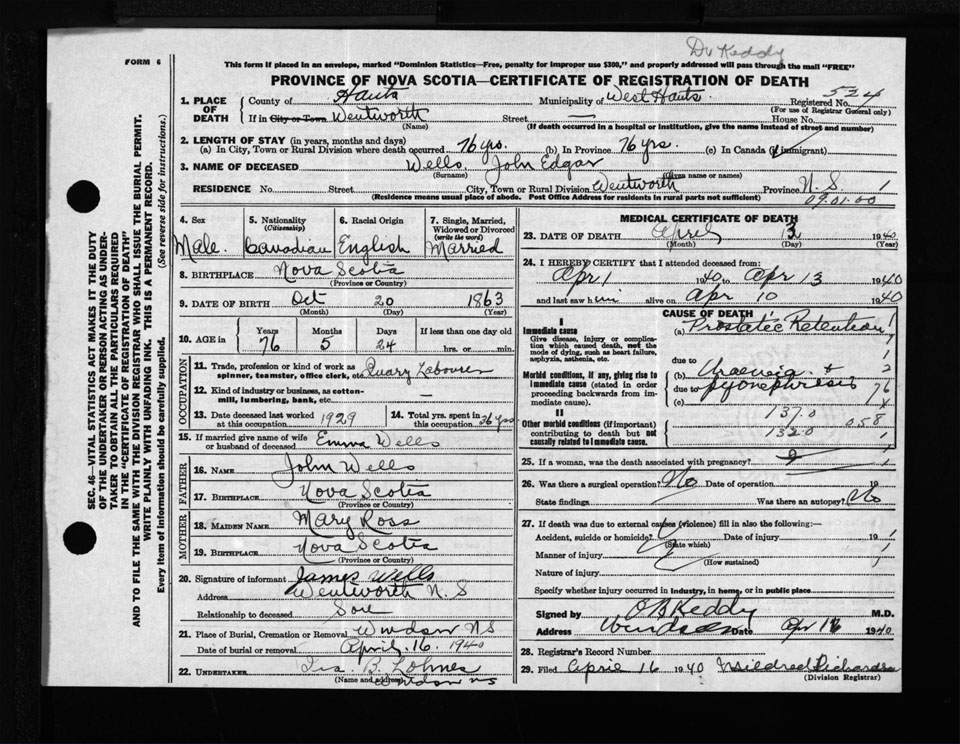 Dr Keddy
FORM 6
This form if placed in an envelope, marked "Dominion Statistics—Free, penalty for improper use $300," and properly addressed will pass through the mail "FREE"
PROVINCE OF NOVA SCOTIA—CERTIFICATE OF REGISTRATION OF DEATH
SEC. 46—VITAL STATISTICS ACT MAKES IT THE DUTY
OF THE UNDERTAKER OR PERSON ACTING AS UNDER-
TAKER TO OBTAIN ALL THE PARTICULARS REQUIRED
IN THE "CERTIFICATE OF REGISTRATION OF DEATH"
AND TO FILE THE SAME WITH THE DIVISION REGISTRAR WHO SHALL ISSUE THE BURIAL PERMIT.
WRITE PLAINLY WITH UNFADING INK. THIS IS A PERMANENT RECORD.
Every item of information should be carefully supplied. (See reverse side for instructions.)
1. PLACE OF DEATH County of Hants Municipality of West Hants Registered No. 524
(For use of Registrar General only)
If in City or Town Wentworth Street — House No.
(Name) (If death occurred in a hospital or institution, give the name instead of street and number)
2. LENGTH OF STAY (in years, months and days)
(a) In City, Town or Rural Division where death occurred 76 yrs. (b) In Province 76 yrs. (c) In Canada (if immigrant)
3. NAME OF DECEASED Wells John Edgar
(Surname) (Given name or names)
RESIDENCE No. Street City, Town or Rural Division Wentworth Province N.S 1
(Residence means usual place of abode. Post Office Address for residents in rural parts not sufficient) 09.01.00
4. Sex Male.
5. Nationality (Citizenship) Canadian
6. Racial Origin English
7. Single, Married, Widowed or Divorced (write the word) Married
8. BIRTHPLACE Nova Scotia
(Province or Country)
9. DATE OF BIRTH Oct 20 1863
(Month) (Day) (Year)
10. AGE in Years 76 Months 5 Days 24 If less than one day old
hrs. or min.
OCCUPATION
11. Trade, profession or kind of work as spinner, teamster, office clerk, etc. Quary Labourer
12. Kind of industry or business, as cotton-mill, lumbering, bank, etc. —
13. Date deceased last worked at this occupation 1929 14. Total yrs. spent in this occupation 36 yrs
15. If married give name of wife or husband of deceased Emma Wells
FATHER
16. NAME John Wells
17. BIRTHPLACE Nova Scotia
(Province or Country)
MOTHER
18. MAIDEN NAME Mary Ross
19. BIRTHPLACE Nova Scotia
(Province or Country)
20. Signature of informant James Wells
Address Wentworth N.S
Relationship to deceased Son
21. Place of Burial, Cremation or Removal Windsor NS
Date of burial or removal April 16 1940
22. UNDERTAKER Ira B. Lohnes
(Name and address) Windsor NS
MEDICAL CERTIFICATE OF DEATH
23. DATE OF DEATH April 13 1940
(Month) (Day) (Year)
24. I HEREBY CERTIFY that I attended deceased from:
Apr 1 1940 to Apr 13 1940
and last saw him alive on Apr 10 1940
CAUSE OF DEATH
I
Immediate cause (a) Prostatic Retention
Give disease, injury or complication which caused death, not the mode of dying, such as heart failure, asphyxia, asthenia, etc.
due to
Morbid conditions, if any, giving rise to immediate cause (stated in order proceeding backwards from immediate cause).
(b) Uraemia +
due to pyonephrosis
(c)
137.0
II
Other morbid conditions (if important) contributing to death but not causally related to immediate cause.
132.0 058
25. If a woman, was the death associated with pregnancy?
26. Was there a surgical operation? No Date of operation 19
State findings Was there an autopsy? No
27. If death was due to external causes (violence) fill in also the following:—
Accident, suicide or homicide? Date of injury 19
(State which)
Manner of injury
(How sustained)
Nature of injury
Specify whether injury occurred in industry, in home, or in public place
Signed by O B Keddy M.D.
Address Windsor Date Apr 16 1940
28. Registrar's Record Number
29. Filed April 16 1940 Mildred Richards
(Division Registrar)